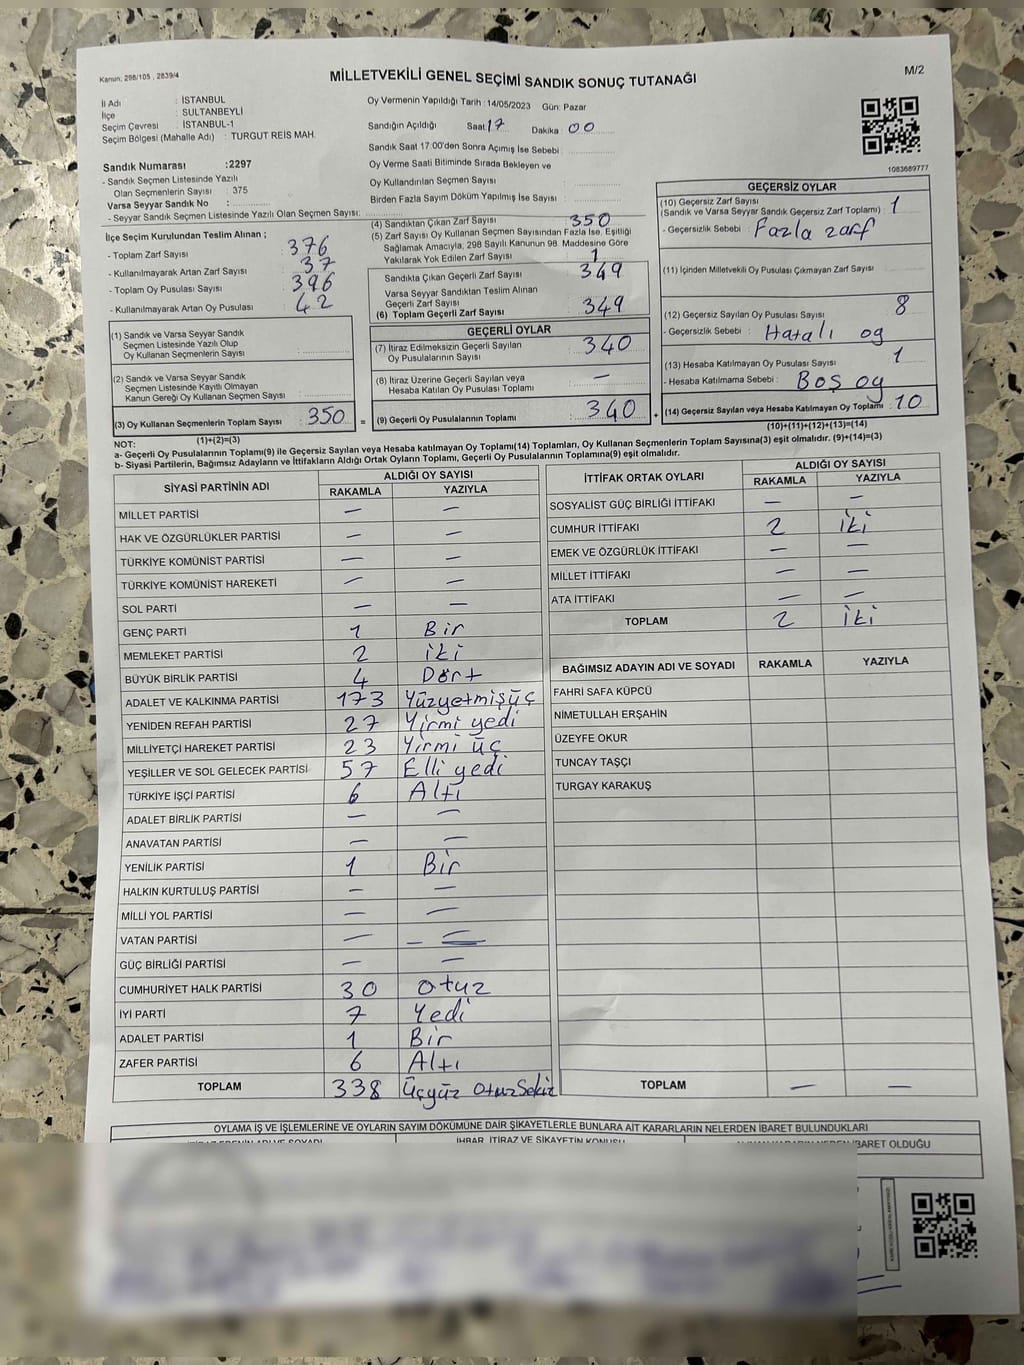 Kanun, 298/105 , 2839/4
MİLLETVEKİLİ GENEL SEÇİMİ SANDIK SONUÇ TUTANAĞI
M/2
İl Adı : İSTANBUL
İlçe : SULTANBEYLİ
Seçim Çevresi : İSTANBUL-1
Seçim Bölgesi (Mahalle Adı) : TURGUT REİS MAH.
Sandık Numarası :2297
- Sandık Seçmen Listesinde Yazılı
Olan Seçmenlerin Sayısı : 375
Varsa Seyyar Sandık No :
- Seyyar Sandık Seçmen Listesinde Yazılı Olan Seçmen Sayısı:
Oy Vermenin Yapıldığı Tarih :14/05/2023 Gün: Pazar
Sandığın Açıldığı Saat:17 Dakika 00
Sandık Saat 17:00'den Sonra Açımış İse Sebebi :
Oy Verme Saati Bitiminde Sırada Bekleyen ve
Oy Kullandırılan Seçmen Sayısı
Birden Fazla Sayım Döküm Yapılmış İse Sayısı :
1083689777
İlçe Seçim Kurulundan Teslim Alınan ;
- Toplam Zarf Sayısı : 376
- Kullanılmayarak Artan Zarf Sayısı : 37
- Toplam Oy Pusulası Sayısı : 396
- Kullanılmayarak Artan Oy Pusulası : 42
(1) Sandık ve Varsa Seyyar Sandık
Seçmen Listesinde Yazılı Olup
Oy Kullanan Seçmenlerin Sayısı :
(2) Sandık ve Varsa Seyyar Sandık
Seçmen Listesinde Kayıtlı Olmayan
Kanun Gereği Oy Kullanan Seçmen Sayısı :
(3) Oy Kullanan Seçmenlerin Toplam Sayısı : 350
(1)+(2)=(3)
(4) Sandıktan Çıkan Zarf Sayısı : 350
(5) Zarf Sayısı Oy Kullanan Seçmen Sayısından Fazla İse, Eşitliği
Sağlamak Amacıyla, 298 Sayılı Kanunun 98. Maddesine Göre
Yakılarak Yok Edilen Zarf Sayısı : 1
Sandıkta Çıkan Geçerli Zarf Sayısı : 349
Varsa Seyyar Sandıktan Teslim Alınan
Geçerli Zarf Sayısı
(6) Toplam Geçerli Zarf Sayısı : 349
GEÇERLİ OYLAR
(7) İtiraz Edilmeksizin Geçerli Sayılan
Oy Pusulalarının Sayısı : 340
(8) İtiraz Üzerine Geçerli Sayılan veya
Hesaba Katılan Oy Pusulası Toplamı : —
= (9) Geçerli Oy Pusulalarının Toplamı : 340
GEÇERSİZ OYLAR
(10) Geçersiz Zarf Sayısı
(Sandık ve Varsa Seyyar Sandık Geçersiz Zarf Toplamı) 1
- Geçersizlik Sebebi : Fazla zarf
(11) İçinden Milletvekili Oy Pusulası Çıkmayan Zarf Sayısı
(12) Geçersiz Sayılan Oy Pusulası Sayısı : 8
- Geçersizlik Sebebi : Hatalı oy
(13) Hesaba Katılmayan Oy Pusulası Sayısı : 1
- Hesaba Katılmama Sebebi : Boş oy
+ (14) Geçersiz Sayılan veya Hesaba Katılmayan Oy Toplamı 10
(10)+(11)+(12)+(13)=(14)
NOT:
a- Geçerli Oy Pusulalarının Toplamı(9) ile Geçersiz Sayılan veya Hesaba katılmayan Oy Toplamı(14) Toplamları, Oy Kullanan Seçmenlerin Toplam Sayısına(3) eşit olmalıdır. (9)+(14)=(3)
b- Siyasi Partilerin, Bağımsız Adayların ve İttifakların Aldığı Ortak Oyların Toplamı, Geçerli Oy Pusulalarının Toplamına(9) eşit olmalıdır.
SİYASİ PARTİNİN ADI ALDIĞI OY SAYISI
RAKAMLA YAZIYLA
MİLLET PARTİSİ — —
HAK VE ÖZGÜRLÜKLER PARTİSİ — —
TÜRKİYE KOMÜNİST PARTİSİ — —
TÜRKİYE KOMÜNİST HAREKETİ — —
SOL PARTİ — —
GENÇ PARTİ 1 Bir
MEMLEKET PARTİSİ 2 iki
BÜYÜK BİRLİK PARTİSİ 4 Dört
ADALET VE KALKINMA PARTİSİ 173 Yüzyetmişüç
YENİDEN REFAH PARTİSİ 27 Yirmi yedi
MİLLİYETÇİ HAREKET PARTİSİ 23 Yirmi üç
YEŞİLLER VE SOL GELECEK PARTİSİ 57 Elli yedi
TÜRKİYE İŞÇİ PARTİSİ 6 Altı
ADALET BİRLİK PARTİSİ — —
ANAVATAN PARTİSİ — —
YENİLİK PARTİSİ 1 Bir
HALKIN KURTULUŞ PARTİSİ — —
MİLLİ YOL PARTİSİ — —
VATAN PARTİSİ — —
GÜÇ BİRLİĞİ PARTİSİ — —
CUMHURİYET HALK PARTİSİ 30 Otuz
İYİ PARTİ 7 Yedi
ADALET PARTİSİ 1 Bir
ZAFER PARTİSİ 6 Altı
TOPLAM 338 Üçyüz OtuzSekiz
İTTİFAK ORTAK OYLARI ALDIĞI OY SAYISI
RAKAMLA YAZIYLA
SOSYALİST GÜÇ BİRLİĞİ İTTİFAKI — —
CUMHUR İTTİFAKI 2 iki
EMEK VE ÖZGÜRLÜK İTTİFAKI — —
MİLLET İTTİFAKI — —
ATA İTTİFAKI — —
TOPLAM 2 iki
BAĞIMSIZ ADAYIN ADI VE SOYADI RAKAMLA YAZIYLA
FAHRİ SAFA KÜPCÜ
NİMETULLAH ERŞAHİN
ÜZEYFE OKUR
TUNCAY TAŞÇI
TURGAY KARAKUŞ
TOPLAM — —
OYLAMA İŞ VE İŞLEMLERİNE VE OYLARIN SAYIM DÖKÜMÜNE DAİR ŞİKAYETLERLE BUNLARA AİT KARARLARIN NELERDEN İBARET BULUNDUKLARI
İHBAR, İTİRAZ VE ŞİKAYETİN KONUSU
İBARET OLDUĞU